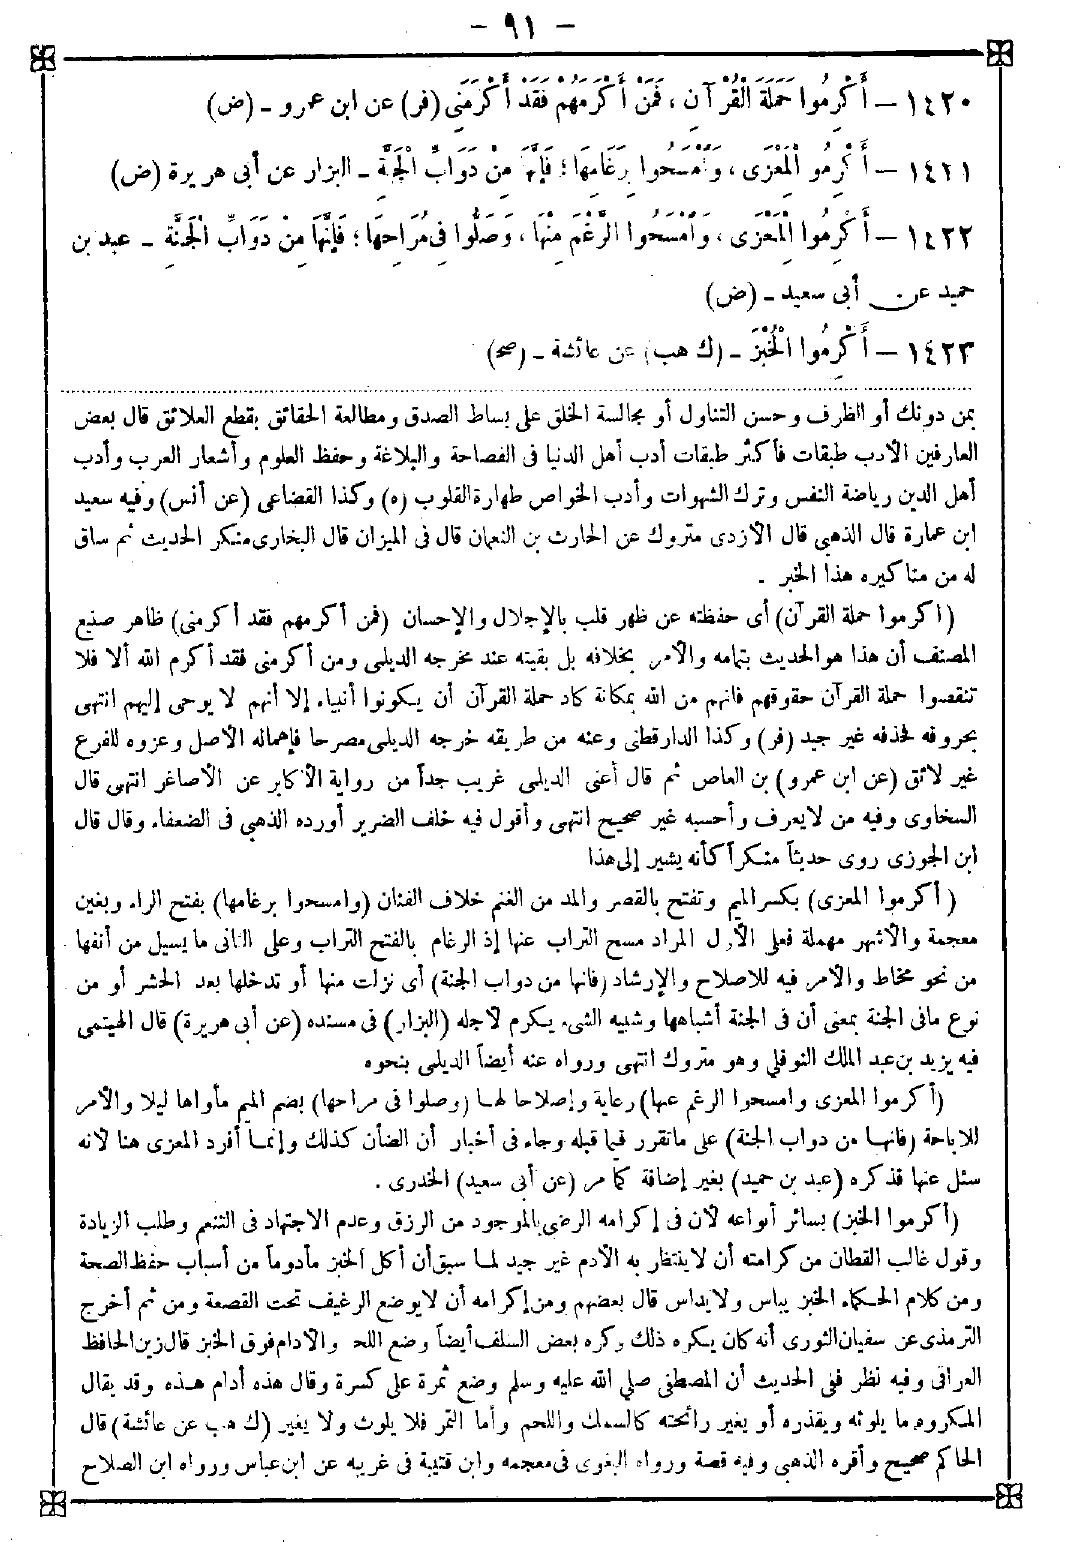 - ٩١ -
١٤٢٠ – أَكْرِمُوا حَمَلَةَ الْقُرْآنِ، فَمَنْ أَكْرَمَهُمْ فَقَدْ أَكْرَمَنِي (فر) عن ابن عمرو ـ (ض)
١٤٢١ – أَكْرِمُو الْمِعْزَى، وَامْسَحُوا بِرَغَامِهَا؛ فَإِنَّهَا مِنْ دَوَابِّ الْجَنَّةِ ـ البزار عن أبى هريرة (ض)
١٤٢٢ – أَكْرِمُوا الْمِعْزَى، وَامْسَحُوا الرَّغْمَ مِنْهَا، وَصَلُّوا فِى مُرَاحِهَا؛ فَإِنَّهَا مِنْ دَوَابِّ الْجَنَّةِ ـ عبد بن
حميد عن أبى سعيد ـ (ض)
١٤٢٣ – أَكْرِمُوا الْخُبْزَ ـ (ك هب) عن عائشة ـ (صح)
بمن دونك أو الظرف وحسن التناول أو مجالسة الخلق على بساط الصدق ومطالعة الحقائق بقطع العلائق قال بعض
العارفين الأدب طبقات فأكثر طبقات أدب أهل الدنيا فى الفصاحة والبلاغة وحفظ العلوم وأشعار العرب وأدب
أهل الدين رياضة النفس وترك الشهوات وأدب الخواص طهارة القلوب (ه) وكذا القضاعى (عن أنس) وفيه سعيد
ابن عمارة قال الذهبى قال الأزدى متروك عن الحارث بن النعمان قال فى الميزان قال البخارى منكر الحديث ثم ساق
له من مناكيره هذا الخبر .
(أكرموا حملة القرآن) أى حفظته عن ظهر قلب بالإجلال والإحسان (فمن أكرمهم فقد أكرمنى) ظاهر صنيع
المصنف أن هذا هو الحديث بتمامه والأمر بخلافه بل بقيته عند مخرجه الديلمى ومن أكرمنى فقد أكرم الله ألا فلا
تنقصوا حملة القرآن حقوقهم فانهم من الله بمكانة كاد حملة القرآن أن يكونوا أنبياء إلا أنهم لا يوحى إليهم انتهى
بحروفه فحذفه غير جيد (فر) وكذا الدارقطنى وعنه من طريقه خرجه الديلمى مصرحا فإهماله الأصل وعزوه للفرع
غير لائق (عن ابن عمرو) بن العاص ثم قال أعنى الديلمى غريب جداً من رواية الأكابر عن الأصاغر انتهى قال
السخاوى وفيه من لايعرف وأحسبه غير صحيح انتهى وأقول فيه خلف الضرير أورده الذهبى فى الضعفاء وقال قال
ابن الجوزى روى حديثاً منكراً كأنه يشير إلى هذا
(أكرموا المعزى) بكسر الميم وتفتح بالقصر والمد من الغنم خلاف الضان (وامسحوا برغامها) بفتح الراء وبغين
معجمة والأشهر مهملة فعلى الأول المراد مسح التراب عنها إذ الرغام بالفتح التراب وعلى الثانى ما يسيل من أنفها
من نحو مخاط والأمر فيه للاصلاح والإرشاد (فانها من دواب الجنة) أى نزلت منها أو تدخلها بعد الحشر أو من
نوع مافى الجنة بمعنى أن فى الجنة أشباهها وشبيه الشىء يكرم لأجله (البزار) فى مسنده (عن أبى هريرة) قال الهيتمى
فيه يزيد بن عبد الملك النوفلى وهو متروك انتهى ورواه عنه أيضاً الديلمى بنحوه
(أكرموا المعزى وامسحوا الرغم عنها) رعاية وإصلاحا لها (وصلوا فى مراحها) بضم الميم مأواها ليلا والأمر
للاباحة (فانها من دواب الجنة) على ماتقرر فيما قبله وجاء فى أخبار أن الضأن كذلك وإنما أفرد المعزى هنا لأنه
سئل عنها فذكره (عبد بن حميد) بغير إضافة كما مر (عن أبى سعيد) الخدرى .
(أكرموا الخبز) بسائر أنواعه لأن فى إكرامه الرضى بالموجود من الرزق وعدم الاجتهاد فى التنعم وطلب الزيادة
وقول غالب القطان من كرامته أن لاينتظر به الأدم غير جيد لما سبق أن أكل الخبز مأدوماً من أسباب حفظ الصحة
ومن كلام الحكماء الخبز يباس ولايداس قال بعضهم ومن إكرامه أن لايوضع الرغيف تحت القصعة ومن ثم أخرج
الترمذى عن سفيان الثورى أنه كان يكره ذلك وكره بعض السلف أيضاً وضع اللح والادام فوق الخبز قال زين الحافظ
العراقى وفيه نظر ففى الحديث أن المصطفى صلى الله عليه وسلم وضع تمرة على كسرة وقال هذه أدام هذه وقد يقال
المكروه ما يلوثه ويقذره أو يغير رائحته كالسمك واللحم وأما التمر فلا يلوث ولا يغير (ك هب عن عائشة) قال
الحاكم صحيح وأقره الذهبى وفيه قصة ورواه البغوى فى معجمه وابن قتيبة فى غريبه عن ابن عباس ورواه ابن الصلاح